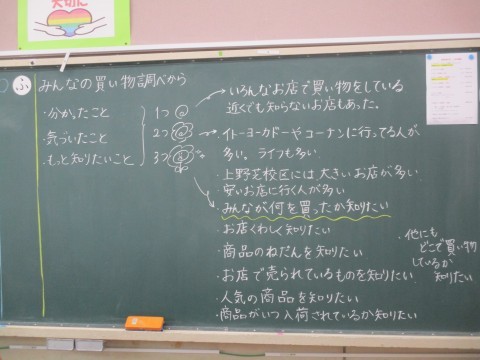 大切に
ふ
みんなの買い物調べから
・分かったこと
・気づいたこと
・もっと知りたいこと
1つ
2つ
3つ
・いろんなお店で買い物をしている
近くでも知らないお店もあった。
・イトーヨーカドーやコーナンに行ってる人が
多い。ライフも多い
・上野芝校区には大きいお店が多い
・安いお店に行く人が多い
・みんなが何を買ったか知りたい
・お店くわしく知りたい
・商品のねだんを知りたい
・お店で売られているものを知りたい
・人気の商品を知りたい
・商品がいつ入荷されているか知りたい
・他にも
どこで買い物
しているか
知りたい